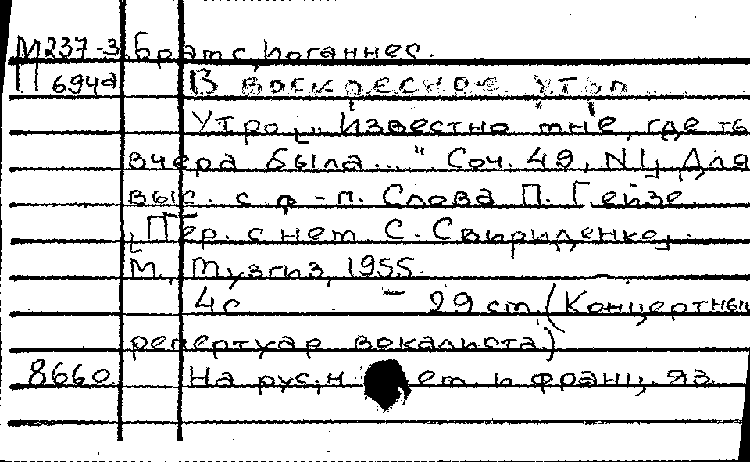 М237-3 Брамс, Иоганнес.
П 694а В воскресное утро
Утро, „Известно мне, где ты
вчера была..." Соч. 49, N1, Для
выс. с ф-п. Слова П. Гейзе.
[Пер. с нем. С. Свириденко].
М., Музгиз, 1955.
4с 29 cm. (Концертный
репертуар вокалиста)
8660 На рус., нем. и франц. яз.